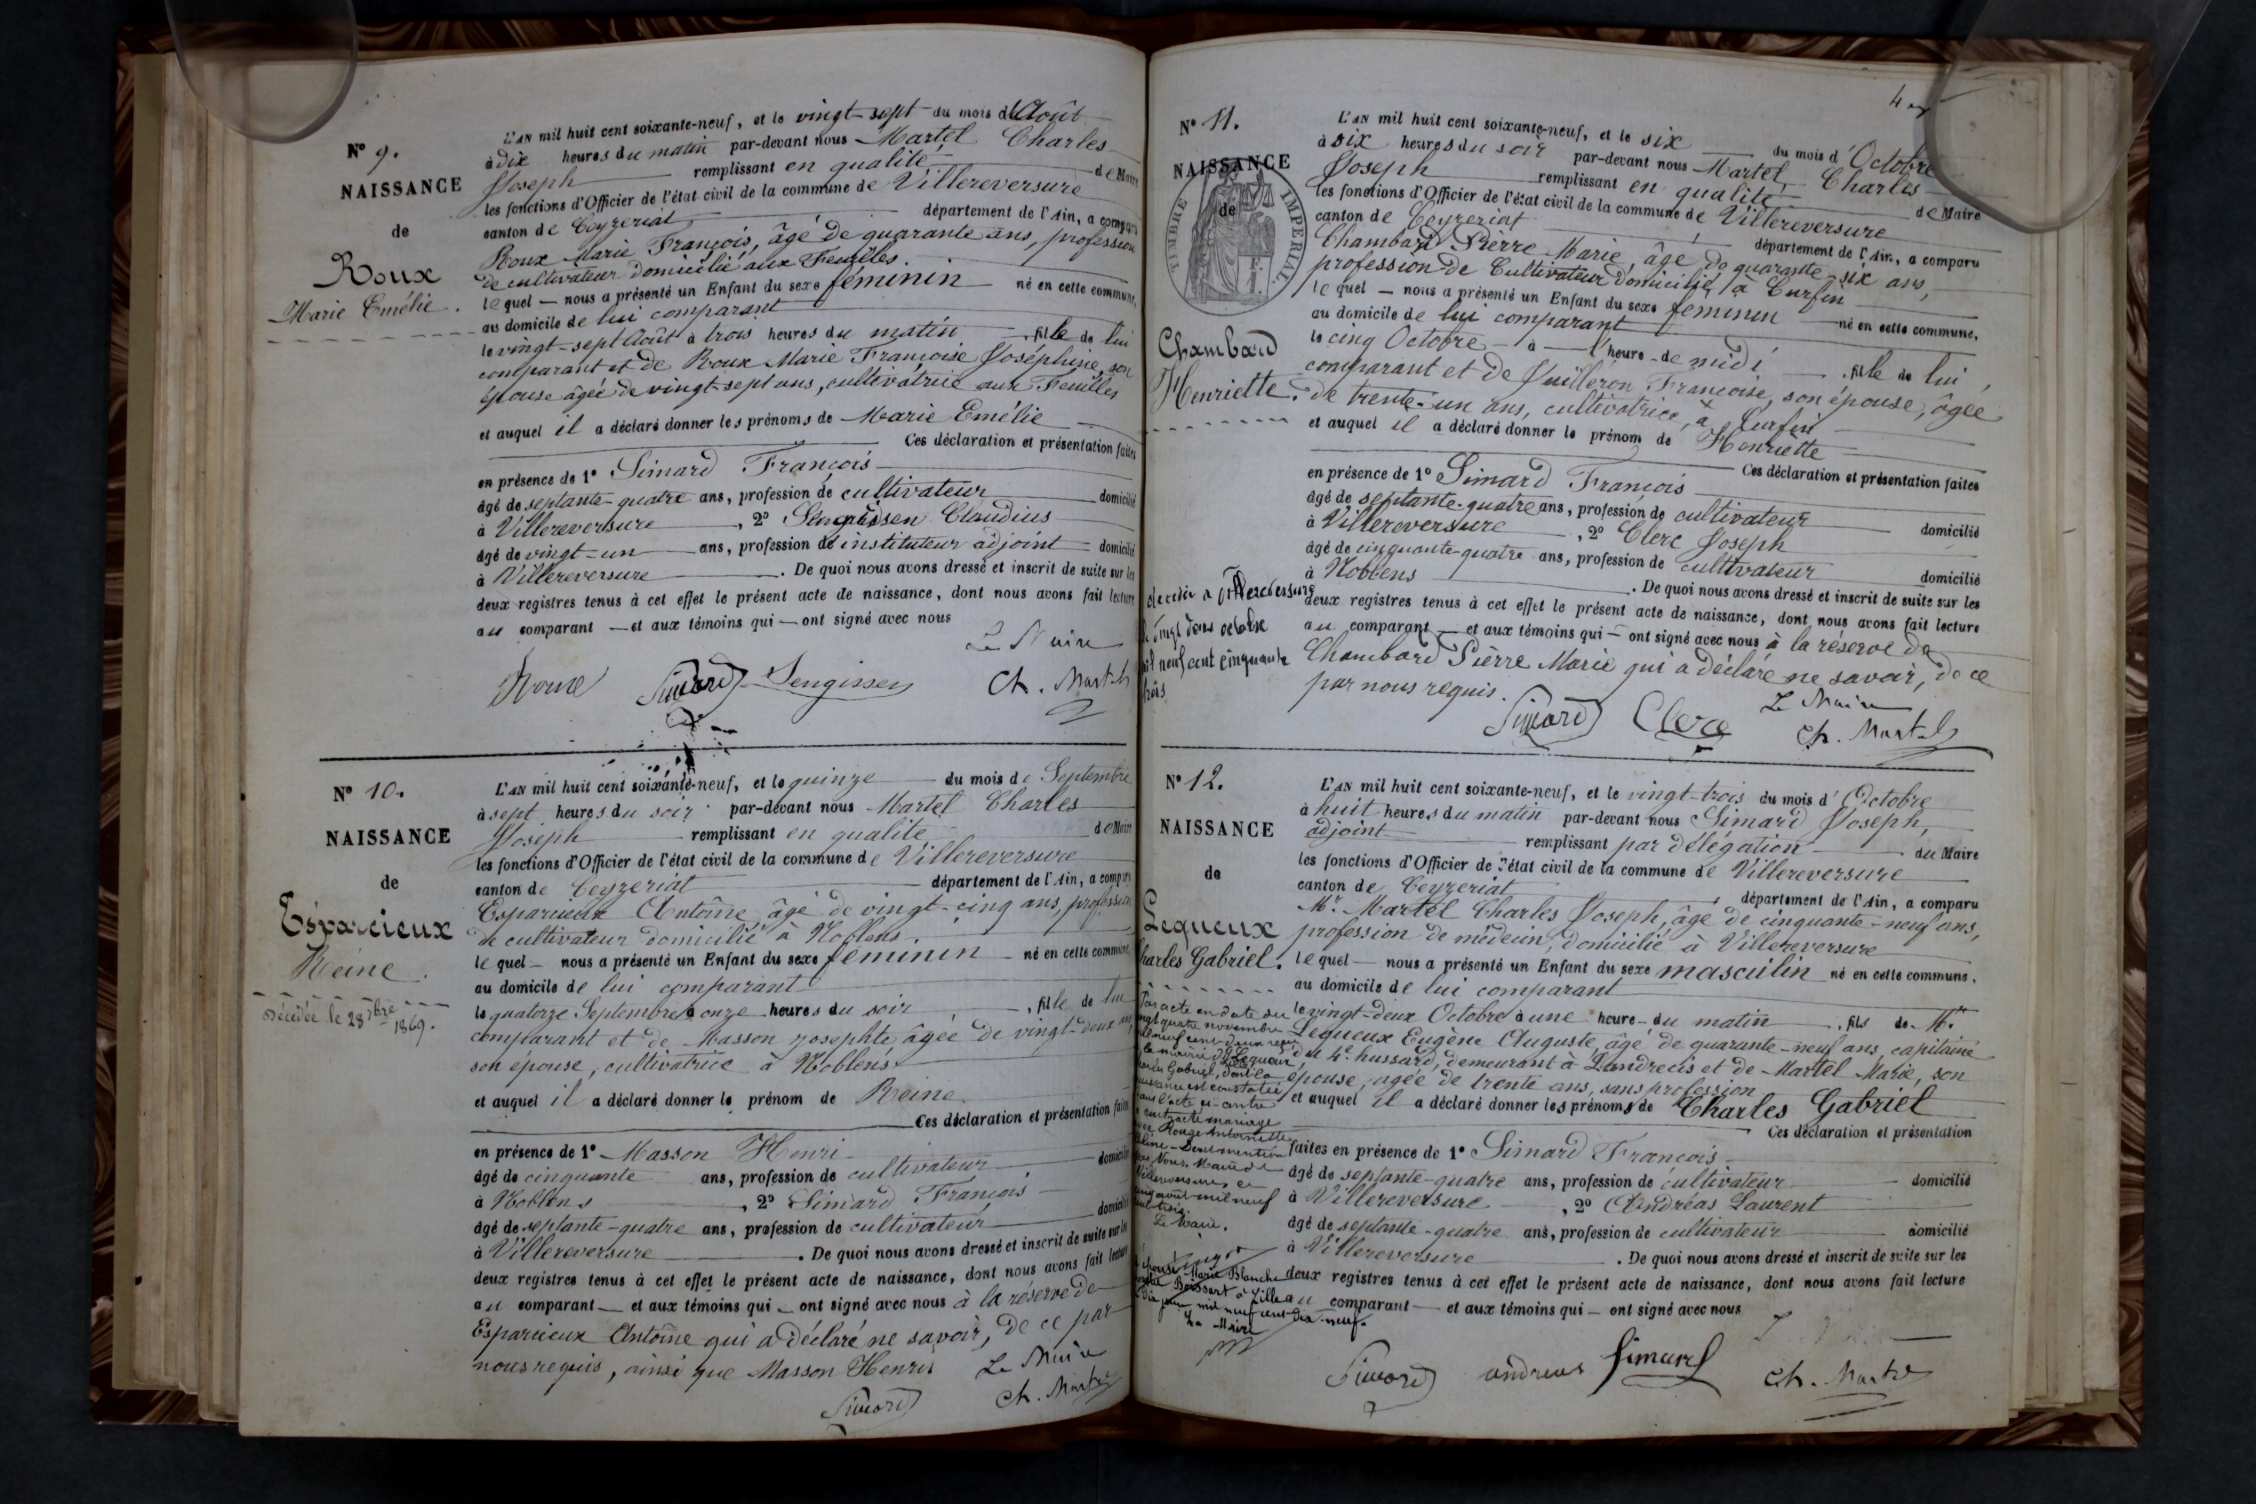 N° 9.
NAISSANCE
de
Roux
Marie Emélie.
L'AN mil huit cent soixante-neuf, et le vingt-sept du mois d'Août
à dix heures du matin par-devant nous Martel Charles
Joseph remplissant en qualité de Maire
les fonctions d'Officier de l'état civil de la commune de Villereversure
canton de Ceyzeriat département de l'Ain, a comparu
Roux Marie François, âgé de quarante ans, profession
de cultivateur domicilié aux Feuilles.
lequel — nous a présenté un Enfant du sexe féminin né en cette commune,
au domicile de lui comparant
le vingt-sept Août à trois heures du matin, fille de lui
comparant et de Roux Marie Françoise Joséphine, son
épouse âgée de vingt-sept ans, cultivatrice aux Feuilles
et auquel il a déclaré donner les prénoms de Marie Emélie
Ces déclaration et présentation faites
en présence de 1° Simard François
âgé de septante-quatre ans, profession de cultivateur domicilié
à Villereversure, 2° Sengissen Claudius
âgé de vingt-un ans, profession de instituteur adjoint domicilié
à Villereversure. De quoi nous avons dressé et inscrit de suite sur les
deux registres tenus à cet effet le présent acte de naissance, dont nous avons fait lecture
au comparant — et aux témoins qui — ont signé avec nous
Le Maire
Roux Simard Sengissen Ch. Martel
N° 10.
NAISSANCE
de
Esparcieux
Reine.
Décédée le 28 7bre
1869.
L'AN mil huit cent soixante-neuf, et le quinze du mois de Septembre
à sept heures du soir par-devant nous Martel Charles
Joseph remplissant en qualité de Maire
les fonctions d'Officier de l'état civil de la commune de Villereversure
canton de Ceyzeriat département de l'Ain, a comparu
Esparcieux Antoine, âgé de vingt-cinq ans, profession
de cultivateur domicilié à Noblens.
lequel — nous a présenté un Enfant du sexe féminin né en cette commune,
au domicile de lui comparant
le quatorze Septembre à onze heures du soir, fille de lui
comparant et de Masson Josephte âgée de vingt-deux ans
son épouse, cultivatrice à Noblens
et auquel il a déclaré donner le prénom de Reine
Ces déclaration et présentation faites
en présence de 1° Masson Henri
âgé de cinquante ans, profession de cultivateur, domicilié
à Noblens, 2° Simard François
âgé de septante-quatre ans, profession de cultivateur domicilié
à Villereversure. De quoi nous avons dressé et inscrit de suite sur les
deux registres tenus à cet effet le présent acte de naissance, dont nous avons fait lecture
au comparant — et aux témoins qui — ont signé avec nous à la réserve de
Esparcieux Antoine qui a déclaré ne savoir, de ce par
nous requis, ainsi que Masson Henri Le Maire
Simard Ch. Martel
4
N° 11.
NAISSANCE
de
TIMBRE IMPERIAL
Chambard
Henriette.
décédée à Villereversure
le vingt deux octobre
mil neuf cent cinquante
trois
L'AN mil huit cent soixante-neuf, et le six du mois d'Octobre
à six heures du soir par-devant nous Martel Charles
Joseph remplissant en qualité de Maire
les fonctions d'Officier de l'état civil de la commune de Villereversure
canton de Ceyzeriat, département de l'Ain, a comparu
Chambard Pierre Marie, âgé de quarante-six ans,
profession de Cultivateur domicilié à Curfin
lequel — nous a présenté un Enfant du sexe feminin né en cette commune,
au domicile de lui comparant
le cinq Octobre à l'heure de midi, fille de lui
comparant et de Juilleron Françoise, son épouse, âgée
de trente-un ans, cultivatrice, à Curfin
et auquel il a déclaré donner le prénom de Henriette
Ces déclaration et présentation faites
en présence de 1° Simard François
âgé de septante-quatre ans, profession de cultivateur domicilié
à Villereversure, 2° Clerc Joseph
âgé de cinquante-quatre ans, profession de cultivateur domicilié
à Noblens. De quoi nous avons dressé et inscrit de suite sur les
deux registres tenus à cet effet le présent acte de naissance, dont nous avons fait lecture
au comparant — et aux témoins qui — ont signé avec nous à la réserve de
Chambard Pierre Marie qui a déclaré ne savoir, de ce
par nous requis. Le Maire
Simard Clerc Ch. Martel
N° 12.
NAISSANCE
de
Lequeux
Charles Gabriel.
Par acte en date du
vingt quatre novembre
mil neuf cent deux reçu
à la mairie de Lequeux
Charles Gabriel, dont la
naissance est constatée
dans l'acte ci-contre
a contracté mariage
avec Rouge Antoinette
Dont mention
par Nous, Maire de
Villereversure, ce
août mil neuf
cent trois.
Le Maire.
épousé
Marie Blanche
Boissart à Lille
dix juin mil neuf cent dix-neuf.
Le Maire
L'AN mil huit cent soixante-neuf, et le vingt-trois du mois d'Octobre
à huit heures du matin par-devant nous Simard Joseph,
adjoint remplissant par délégation du Maire
les fonctions d'Officier de l'état civil de la commune de Villereversure
canton de Ceyzeriat, département de l'Ain, a comparu
Mr. Martel Charles Joseph, âgé de cinquante-neuf ans,
profession de médecin, domicilié à Villereversure
lequel — nous a présenté un Enfant du sexe masculin né en cette commune.
au domicile de lui comparant
le vingt-deux Octobre à une heure du matin, fils de Mr.
Lequeux Eugène Auguste, âgé de quarante-neuf ans, capitaine
du 4e hussard, demeurant à Landrecis et de Martel Marie, son
épouse, agée de trente ans, sans profession
et auquel il a déclaré donner les prénoms de Charles Gabriel
Ces déclaration et présentation
faites en présence de 1° Simard François
âgé de septante-quatre ans, profession de cultivateur domicilié
à Villereversure, 2° Andréas Laurent
âgé de septante-quatre ans, profession de cultivateur domicilié
à Villereversure. De quoi nous avons dressé et inscrit de suite sur les
deux registres tenus à cet effet le présent acte de naissance, dont nous avons fait lecture
au comparant — et aux témoins qui — ont signé avec nous
Simard andreas Simard Ch. Martel